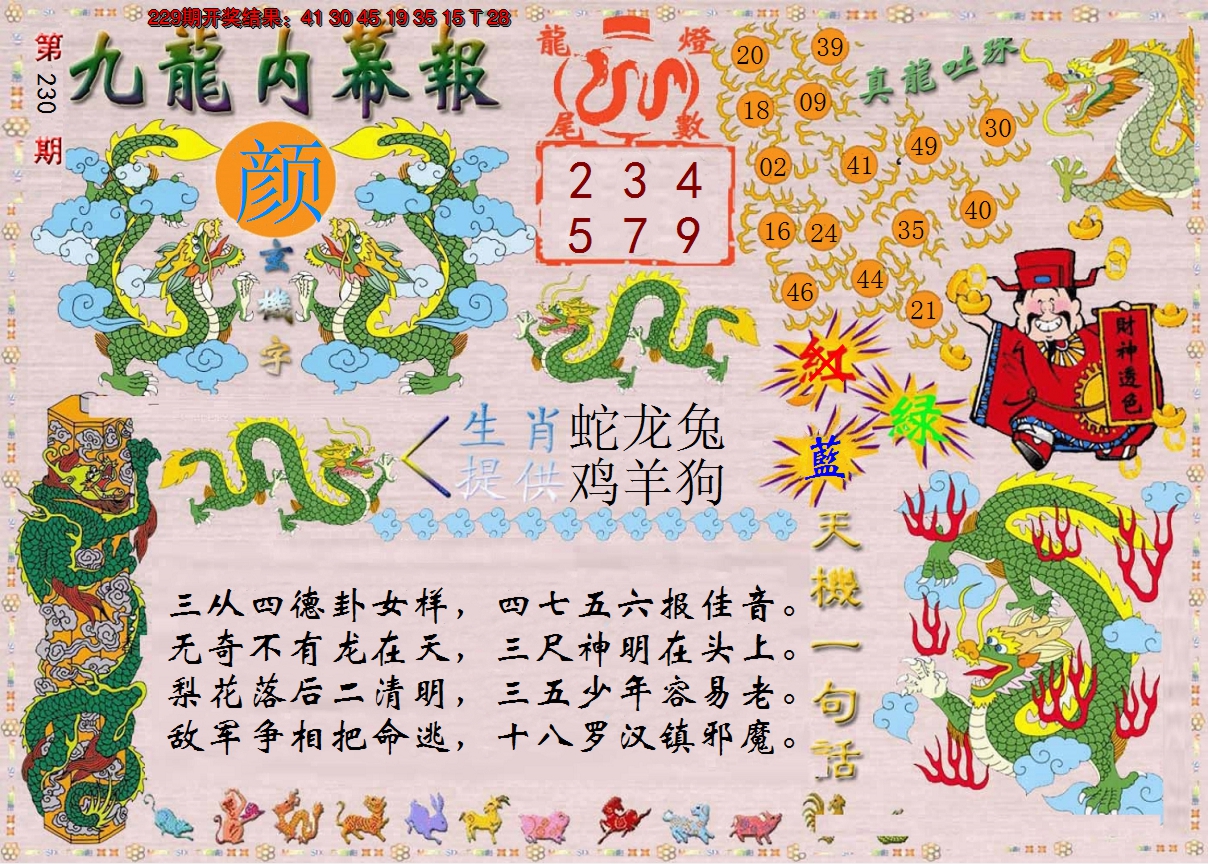 229期开奖结果：41 30 45 19 35 15 T 28
第230期
九龍内幕報
颜
玄機字
龍燈尾數
2 3 4
5 7 9
真龍吐珠
20 39
18 09
02 41 49 30
16 24 35 40
46 44 21
財神透色
紅
綠
藍
生肖 蛇龙兔
提供 鸡羊狗
天機一句話
三从四德卦女样，四七五六报佳音。
无奇不有龙在天，三尺神明在头上。
梨花落后二清明，三五少年容易老。
敌军争相把命逃，十八罗汉镇邪魔。